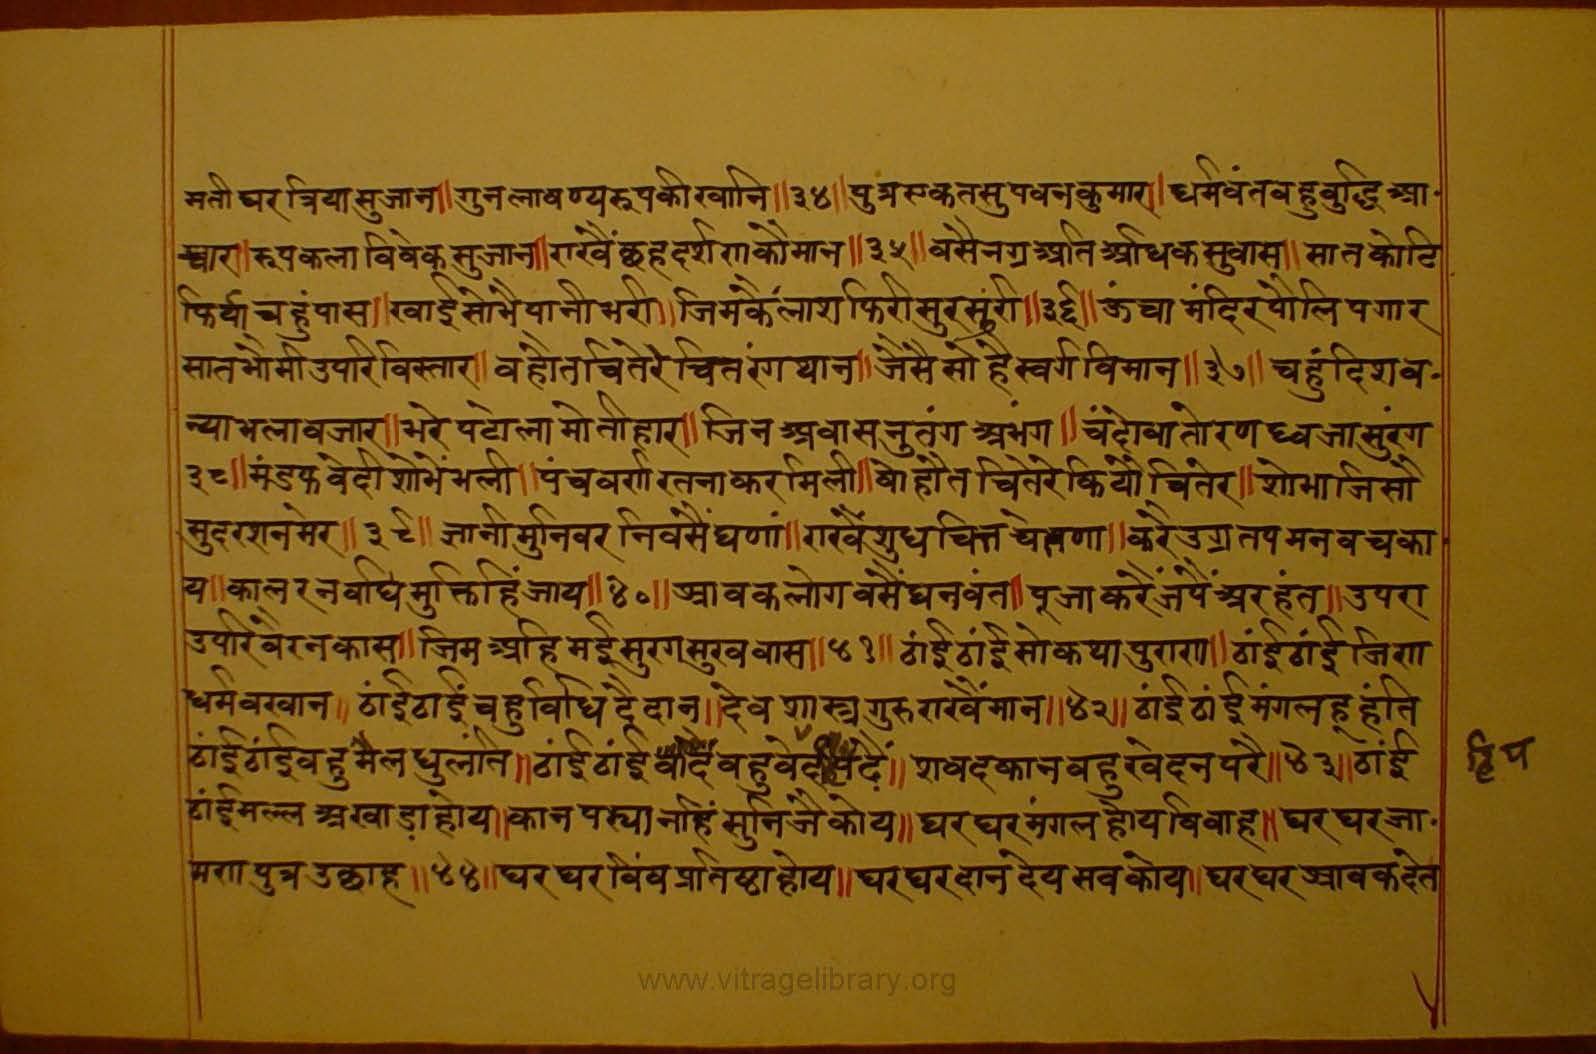 मती घर त्रिया सुजान॥ गुन लावण्य रूप की खानि॥३४॥ पुत्र एक तसु पवन कुमार॥ धर्मवंत वहु वुद्धि आ-
चार॥ रूप कला विवेक सुजान॥ राखैं छह दर्शण कौ मान॥३५॥ वसै नग्र अति अधिक सुवास॥ सात कोटि
फिर्या चहुंपास॥ खाई सोभै पानी भरी॥ जिम कैलाश फिरी सुरसुंरी॥३६॥ ऊंचा मंदिर पौलि पगार
सात भौमी उपरि विस्तार॥ वहौत चितेरे चित रंग थान॥ जैसै सोहै स्वर्ग विमान॥३७॥ चहुंदिश व-
न्या भला वजार॥ भरे पटोला मोतीहार॥ जिन अवास नुतंग अभंग॥ चंदोवा तोरण ध्वजा सुरंग
३८॥ मंडफ वेदी शोभैं भली॥ पंच वर्ण रतनाकर मिली॥ वोहोत चितेरे कियौ चितेर॥ शोभा जिसौ
सुदरशन मेर॥३९॥ ज्ञानी मुनिवर निवसैं घणां॥ राखैं शुध चित्त चेपणा॥ करै उग्र तप मन वच का
य॥ काल र नवधि मुक्तिहिं जाय॥४०॥ श्रावक लोग वसैं धनवंत॥ पूजा करैं जंपैं अरहंत॥ उपरा
उपरि वैर न कास॥ जिम अहि मई सुरग् सुख वास॥४१॥ ठांई ठांई सो कथा पुराण॥ ठांई ठांई जिण
धर्म वखान॥ ठांई ठाईं चहुविधि दै दान॥ देव शास्त्र गुरु राखैं मान॥४२॥ ठांई ठांई मंगल हू हंति
ठांई ठांई वहु मैल धुलंति॥ ठांई ठांई वहु शवद कान वहु खेद न परै॥४३॥ ठांई
ठांई मल्ल अखाड़ा होय॥ कान पड्या नहिं सुनिजै कोय॥ घर घर मंगल होय विवाह॥ घर घर जा-
मण पुत्र उछाह॥४४॥ घर घर विंव प्रतिष्ठा होय॥ घर घर दान देय सव कोय॥ घर घर श्रावक देत
www.vitragelibrary.org